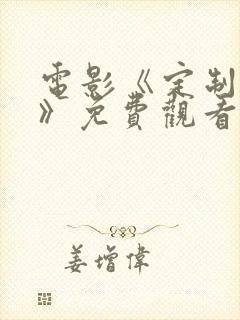 電影《定制
》免費觀看
姜增偉